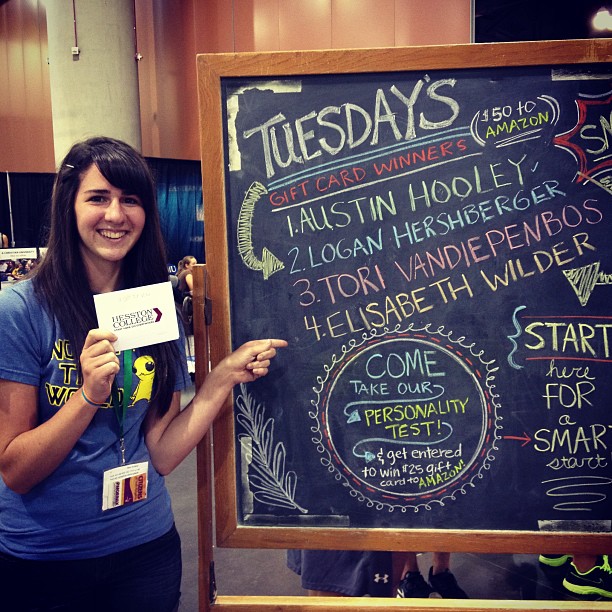 TUESDAY'S
$50 to
AMAZON
GIFT CARD WINNERS
1. AUSTIN HOOLEY
2. LOGAN HERSHBERGER
3. TORI VANDIEPENBOS
4. ELISABETH WILDER
COME
TAKE OUR
PERSONALITY
TEST!
& get entered
to win $25 gift
card to AMAZON!
START
here
FOR
a
SMAR
start
HESSTON
COLLEGE